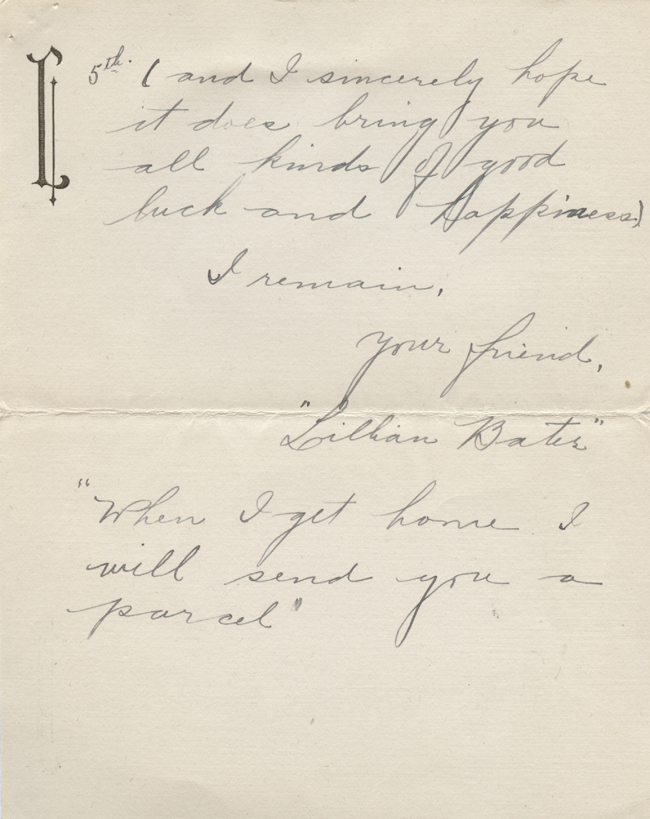 L
5th. (and I sincerely hope
it does bring you
all kinds of good
luck and happiness)
I remain,
your friend,
"Lillian Bates"
"When I get home I
will send you a
parcel"